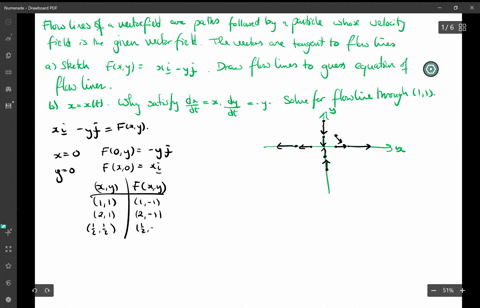 Numerade - Drawboard PDF
Flow lines of a vectorfield are paths followed by a particle whose velocity
1 / 6
field is the given vector field. The vectors are tangent to flow lines
a) Sketch F(x,y) = xi - yj. Draw flow lines to guess equation of
flow lines.
b) x = x(t). Why satisfy dx/dt = x, dy/dt = -y. Solve for flowline through (1,1).
y
xi - yj = F(x,y).
x
x=0 F(0,y) = -yj
y=0 F(x,0) = xi
(x,y) F(x,y)
(1,1) (1,-1)
(2,1) (2,-1)
(½,½) (½,-
51%